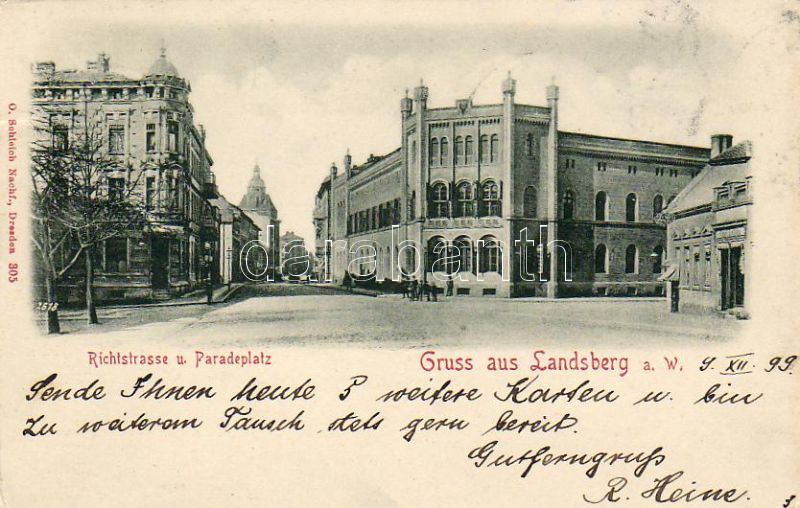 O. Schleich Nachf., Dresden 305
2578
darabanth
Richtstrasse u. Paradeplatz
Gruss aus Landsberg a. W.
9. XII. 99.
Sende Ihnen heute 5 weitere Karten u. bin
zu weiterem Tausch stets gern bereit.
Gutferngruß
R. Heine.